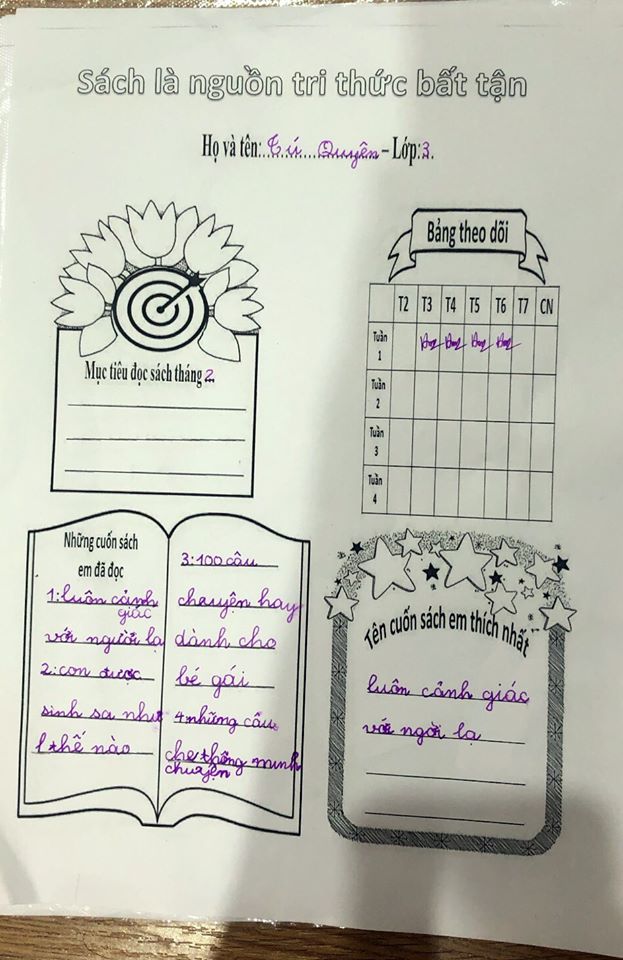 Sách là nguồn tri thức bất tận
Họ và tên:..Tú......Quyên – Lớp:3.
Mục tiêu đọc sách tháng 2
Bảng theo dõi
T2 T3 T4 T5 T6 T7 CN
Tuần
1
Tuần
2
Tuần
3
Tuần
4
Những cuốn sách
em đã đọc
1:luôn cảnh
giác
với người lạ
2:con được
sinh sa như
thế nào
3:100 câu
chuyện hay
dành cho
bé gái
4 những câu
che thông minh
chuyện
Tên cuốn sách em thích nhất
luôn cảnh giác
với ngời lạ